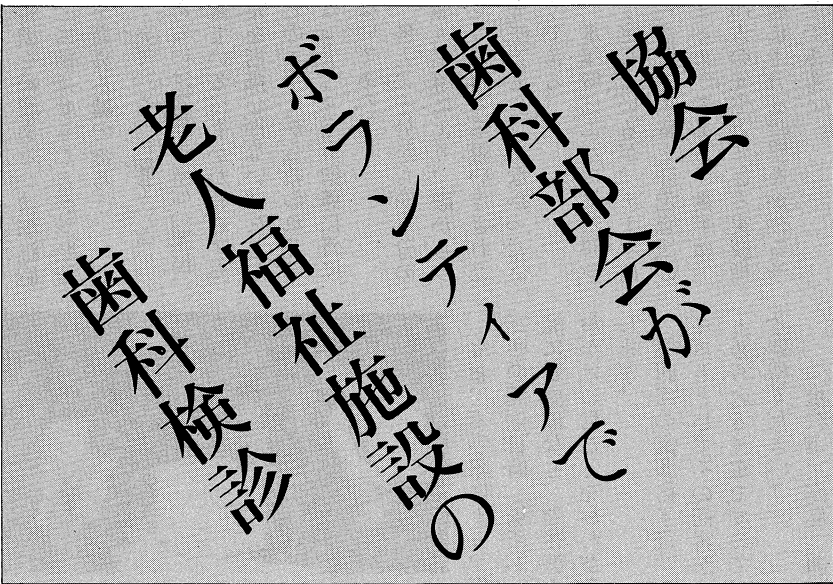 協会
歯科部会が
ボランティアで
老人福祉施設の
歯科検診